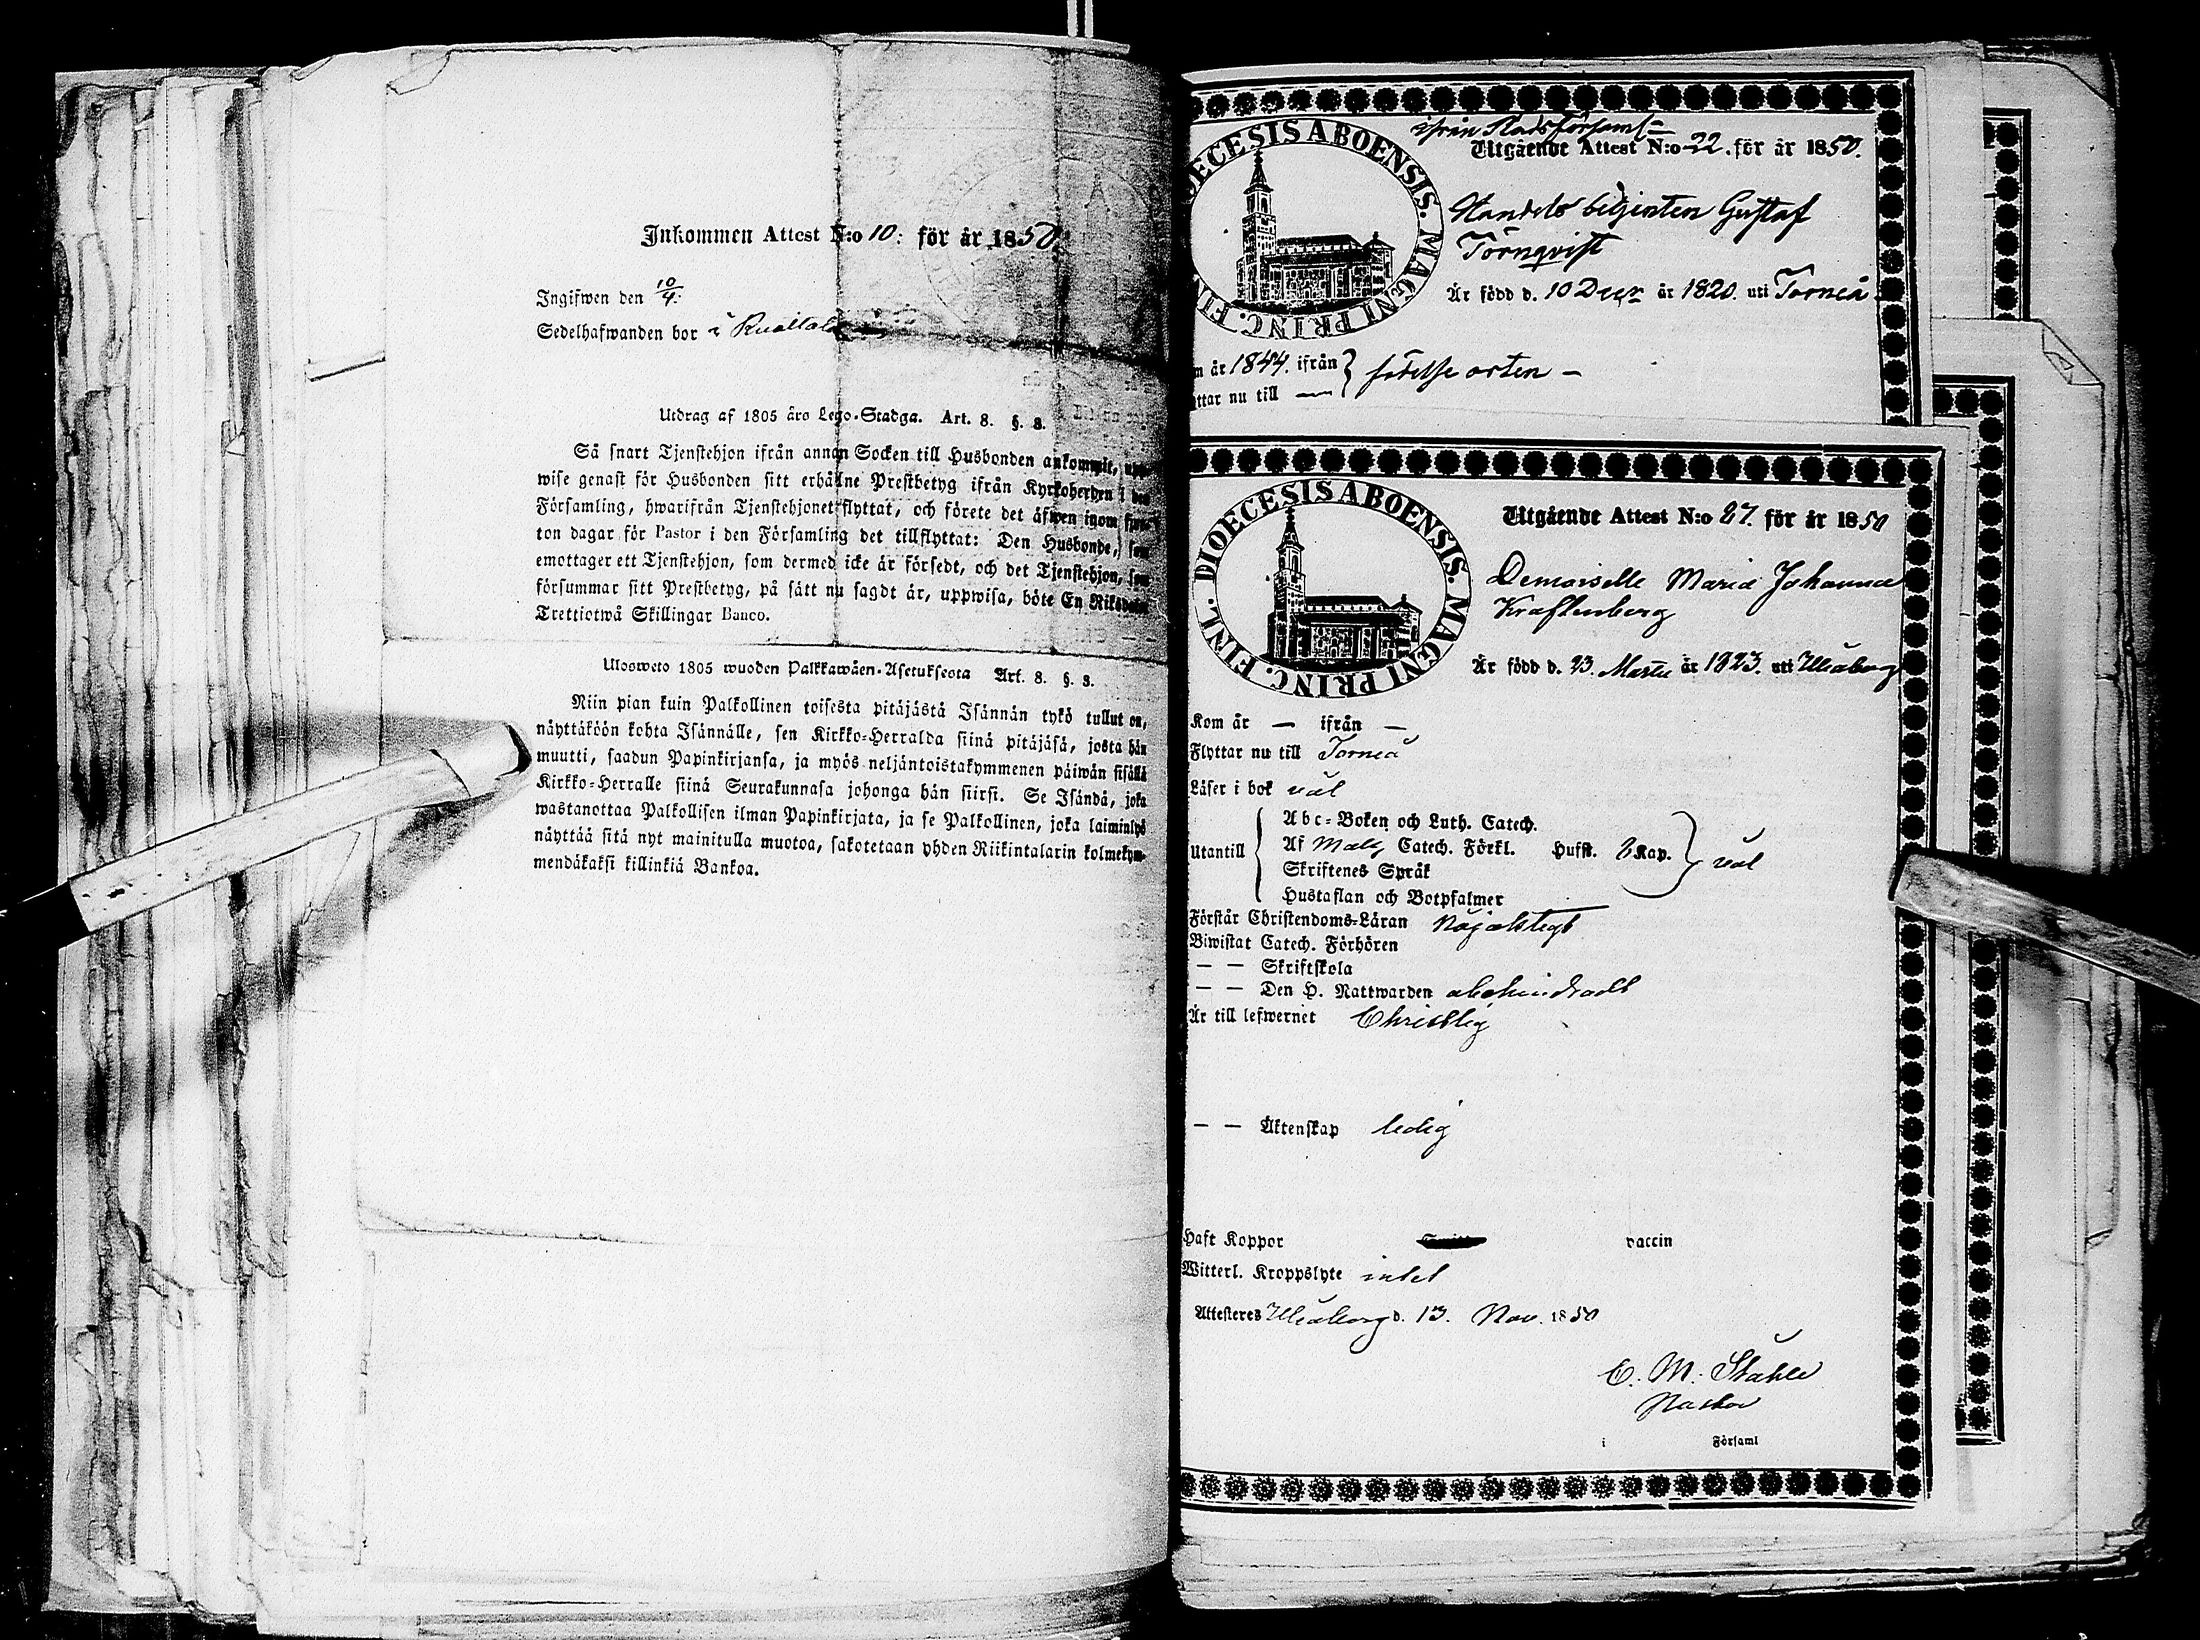 Inkommen Attest N:o 10: för år 1850.
Ingifwen den 10/4.
Sedelhafwanden bor i
Utdrag af 1805 års Lego-Stadga. Art. 8. §. 8.
Så snart Tjenstehjon ifrån annan Socken till Husbonden ankommit,
wise genast för Husbonden sitt erhållne Prestbetyg ifrån Kyrkoherden i den
Församling, hwarifrån Tjenstehjonet flyttat, och förete det äfwen inom fjor-
ton dagar för Pastor i den Församling det tillflyttat: Den Husbonde, som
emottager ett Tjenstehjon, som dermed icke är försedt, och det Tjenstehjon, som
försummar sitt Prestbetyg, på sätt nu sagdt är, uppwisa, böte En Riksdaler
Trettiotwå Skillingar Banco.
Ulosweto 1805 wuoden Palkkawäen-Asetuksesta Art. 8. §. 8.
Niin pian kuin Palkollinen toisesta pitäjästä Isännän tykö tullut on,
näyttäköön kohta Isännälle, sen Kirkko-Herralda siinä pitäjäsä, josta hän
muutti, saadun Papinkirjansa, ja myös neljäntoistakymmenen päiwän sisällä
Kirkko-Herralle siinä Seurakunnasa johonga hän siirsi. Se Isändä, joka
wastanottaa Palkollisen ilman Papinkirjata, ja se Palkollinen, joka laiminlyö
näyttää sitä nyt mainitulla muotoa, sakotetaan yhden Riikintalarin kolmekym-
mendäkaksi killinkiä Bankoa.
ifrån Stadsförsaml-
Utgående Attest N:o 22. för år 1850.
DIOECESIS ABOENSIS. MAGNI PRINC. FINL.
Handels betjenten Gustaf
Törnqvist
Är född d. 10 Decbr år 1820. uti Torneå
m år 1844. ifrån } födelse orten –
ttar nu till —
Utgående Attest N:o 27. för år 1850
DIOECESIS ABOENSIS. MAGNI PRINC. FINL.
Demoiselle Maria Johanna
Kraftenberg
Är född d. 23. Martii år 1823. uti Uleåborg
Kom år — ifrån —
Flyttar nu till Torneå
Läser i bok väl
Utantill { Abc-Boken och Luth. Catech.
Af Catech. Förkl. Husst. Kap. } väl
Skriftenes Språk
Hustaflan och Botpsalmer
Förstår Christendoms-Läran nöjaktigt
Biwistat Catech. Förhören
— — Skriftskola
— — Den H. Nattwarden obehindradt
Är till lefwernet Christlig
— — Äktenskap ledig
Haft Koppor vaccin
Witterl. Kroppslyte intet
Attesteres Uleåborg d. 13. Nov. 1850
C. M. Ståhle
Pastor
i Församl